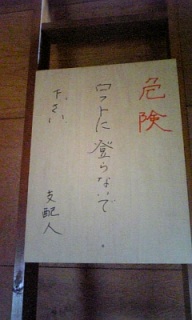 危険
ロフトに登らないで
下さい。
支配人